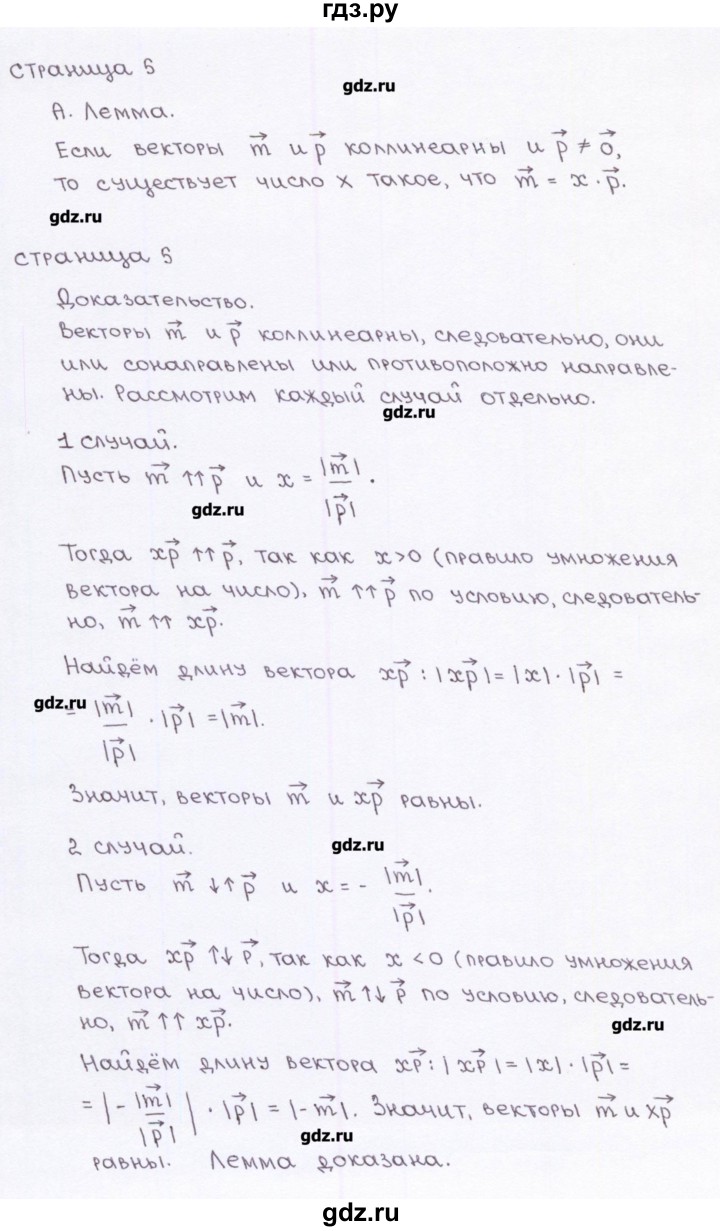 гдз.ру
страница 5
gdz.ru
А. Лемма.
Если векторы m⃗ и p⃗ коллинеарны и p⃗ ≠ 0⃗,
то существует число x такое, что m⃗ = x · p⃗.
gdz.ru
страница 5
Доказательство.
Векторы m⃗ и p⃗ коллинеарны, следовательно, они
или сонаправлены или противоположно направле-
ны. Рассмотрим каждый случай отдельно.
gdz.ru
1 случай.
Пусть m⃗ ↑↑ p⃗ и x = |m⃗|/|p⃗|.
gdz.ru
Тогда xp⃗ ↑↑ p⃗, так как x>0 (правило умножения
вектора на число), m⃗ ↑↑ p⃗ по условию, следователь-
но, m⃗ ↑↑ xp⃗.
Найдём длину вектора xp⃗ : |xp⃗| = |x| · |p⃗| =
gdz.ru
= |m⃗|/|p⃗| · |p⃗| = |m⃗|.
Значит, векторы m⃗ и xp⃗ равны.
2 случай.
gdz.ru
Пусть m⃗ ↓↑ p⃗ и x = - |m⃗|/|p⃗|.
Тогда xp⃗ ↑↓ p⃗, так как x <0 (правило умножения
вектора на число), m⃗ ↑↓ p⃗ по условию, следователь-
но, m⃗ ↑↑ xp⃗.
gdz.ru
Найдём длину вектора xp⃗ : |xp⃗| = |x| · |p⃗| =
= |- |m⃗|/|p⃗|| · |p⃗| = |-m⃗|. Значит, векторы m⃗ и xp⃗
gdz.ru
равны. Лемма доказана.
gdz.ru